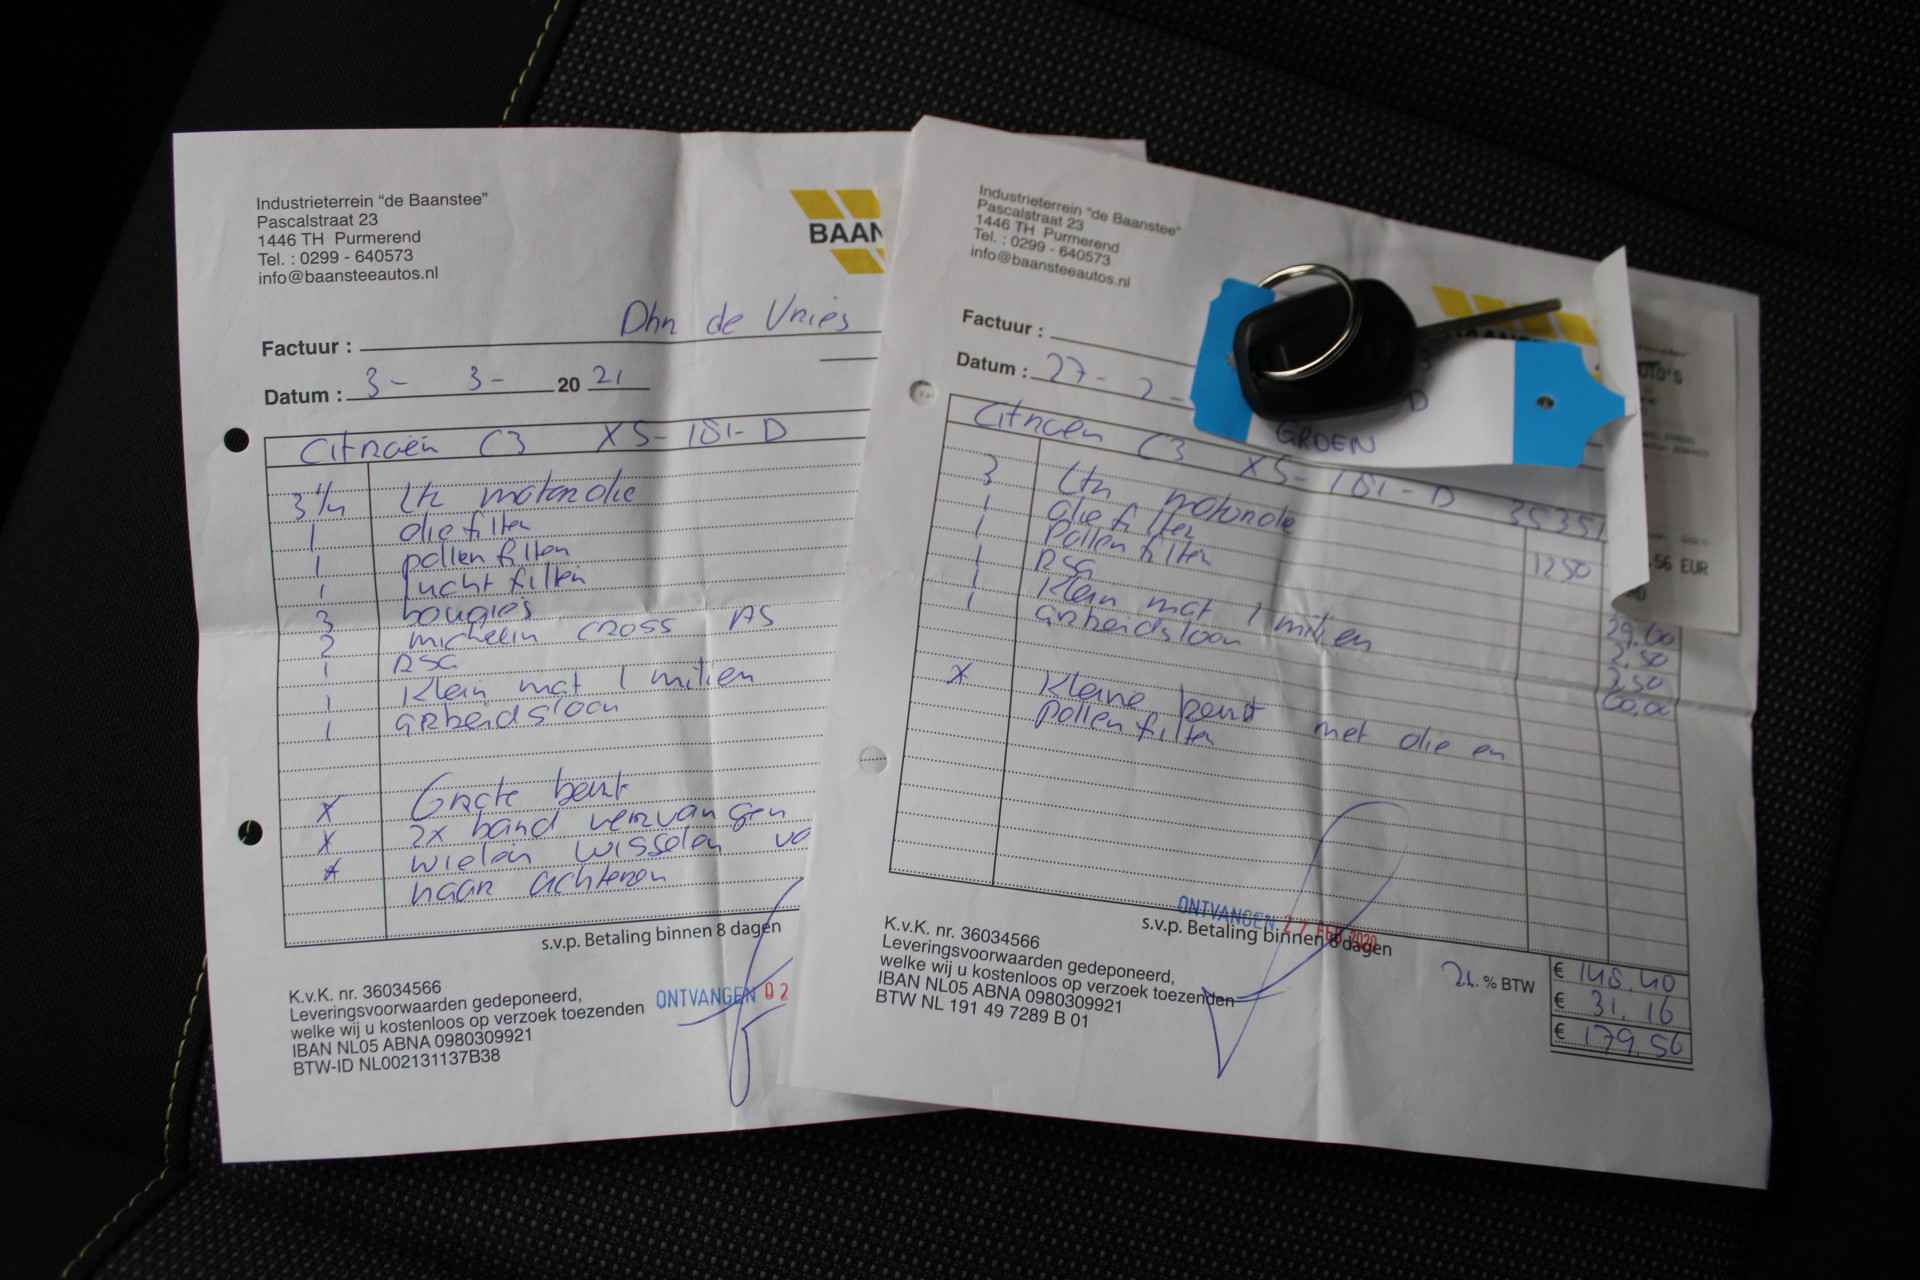 Industrieterrein "de Baanstee"
Pascalstraat 23
1446 TH Purmerend
Tel. : 0299 - 640573
info@baansteeautos.nl
Dhr de Vries
Factuur :
Datum : 3 - 3 - 20 21
Citroën C3 XS-181-D
3 1/4 Ltr motorolie
1 olie filter
1 pollen filter
1 lucht filter
3 bougies
2 michelin CROSS AS
1 RSG
1 Klein mat 1 milieu
1 arbeidsloon
X Grote beurt
X 2x band vervangen
X wielen wisselen
naar achteren
s.v.p. Betaling binnen 8 dagen
K.v.K. nr. 36034566
Leveringsvoorwaarden gedeponeerd,
welke wij u kostenloos op verzoek toezenden
IBAN NL05 ABNA 0980309921
BTW-ID NL002131137B38
ONTVANGEN 02
Industrieterrein "de Baanstee"
Pascalstraat 23
1446 TH Purmerend
Tel. : 0299 - 640573
info@baansteeautos.nl
Factuur :
Datum : 27 - 2 -
GROEN
D
Citroën C3 XS-181-D 35351
3 Ltr motorolie 1250
1 olie filter
1 Pollen filter
1 RSG
1 Klein mat 1 milieu
1 arbeidsloon
29,60
2,50
2,50
60,00
56 EUR
X Kleine beurt met olie en
pollen filter
ONTVANGEN 27 FEB 2020
s.v.p. Betaling binnen 8 dagen
K.v.K. nr. 36034566
Leveringsvoorwaarden gedeponeerd,
welke wij u kostenloos op verzoek toezenden
IBAN NL05 ABNA 0980309921
BTW NL 191 49 7289 B 01
21 % BTW
€ 148,40
€ 31,16
€ 179,56